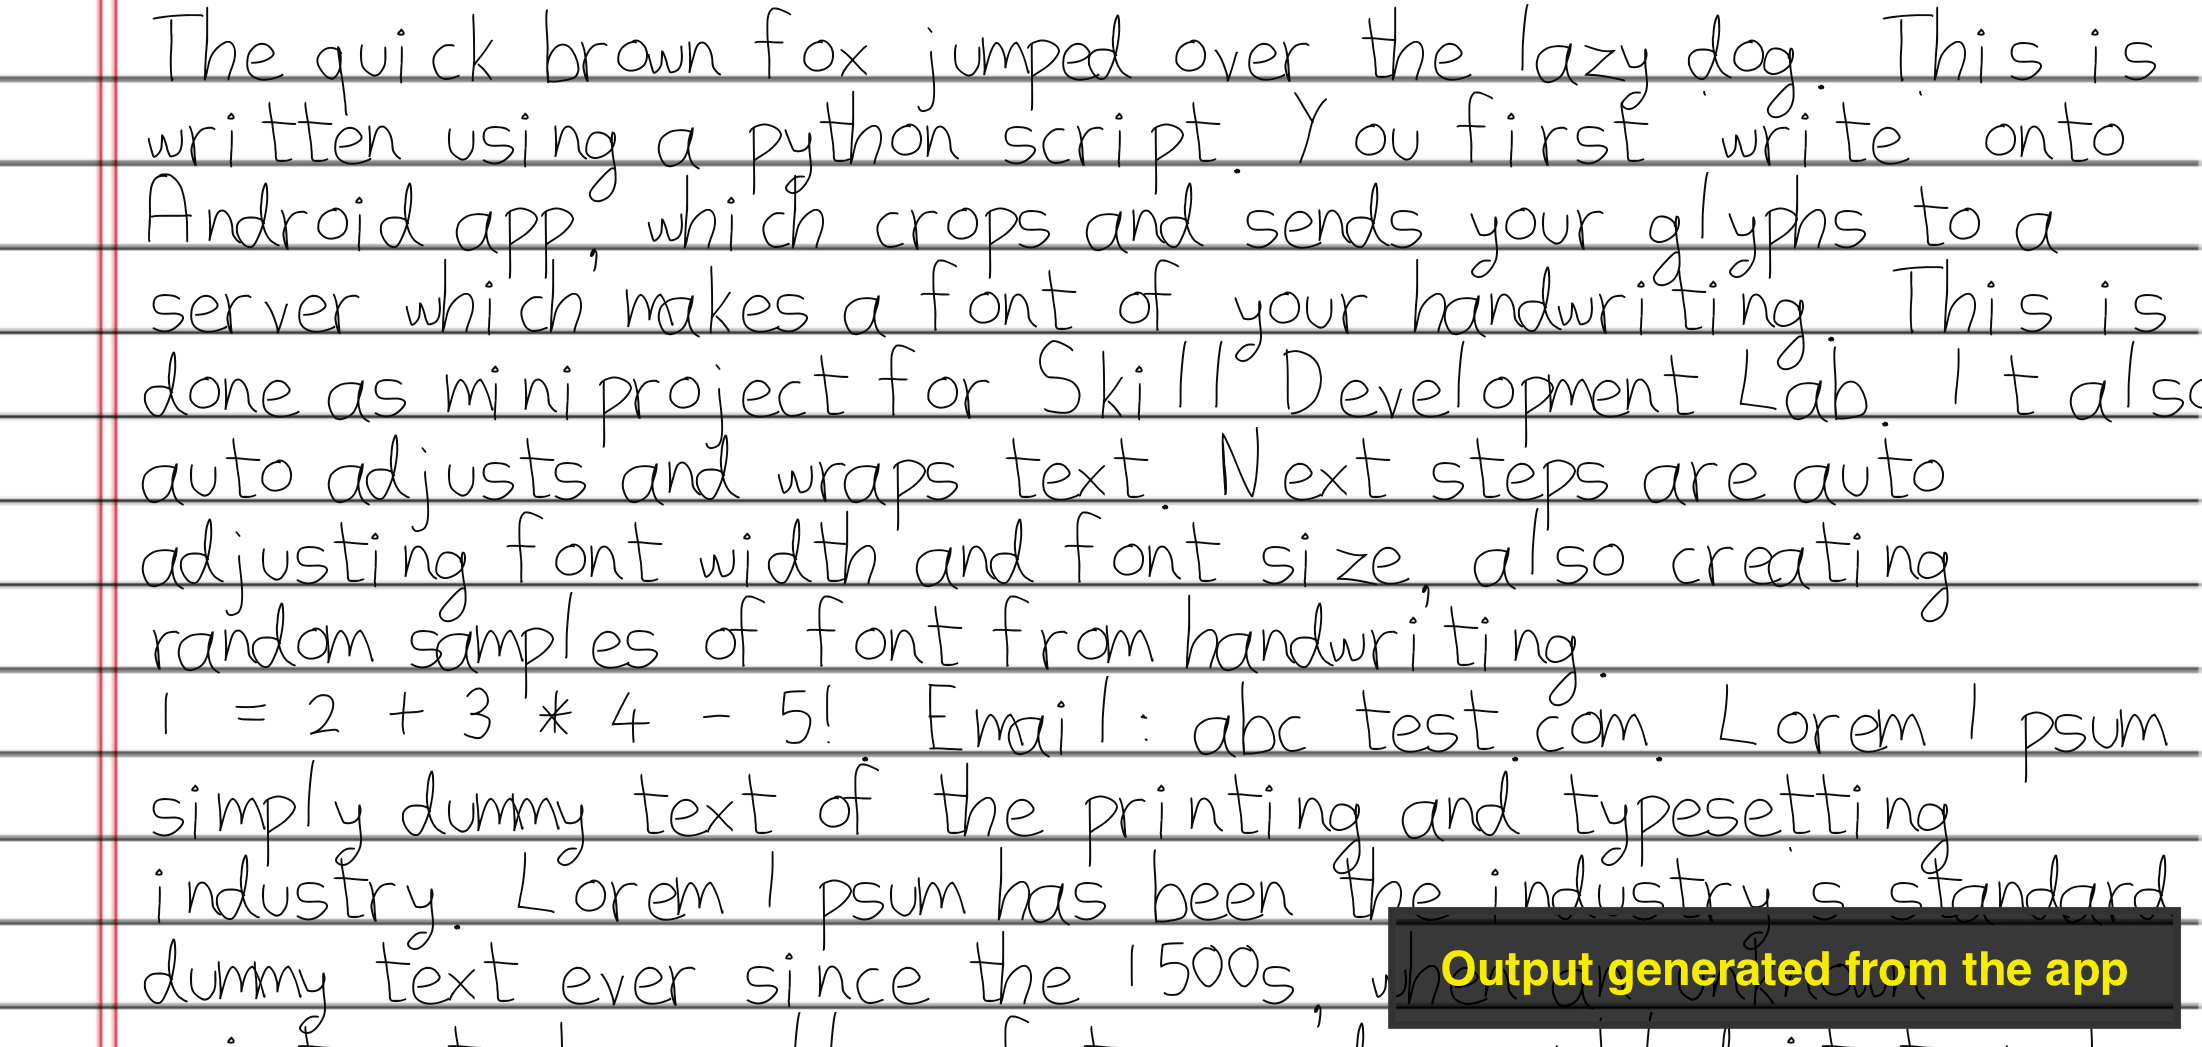 The quick brown fox jumped over the lazy dog. This is
written using a python script. You first 'write' onto
Android app, which crops and sends your glyphs to a
server which makes a font of your handwriting. This is
done as mini project for Skill Development Lab. It also
auto adjusts and wraps text. Next steps are auto
adjusting font width and font size, also creating
random samples of font from handwriting.
1 = 2 + 3 * 4 - 5! Email: abc test.com. Lorem Ipsum
simply dummy text of the printing and typesetting
industry. Lorem Ipsum has been the industry's standard
dummy text ever since the 1500s, when an unknown
Output generated from the app